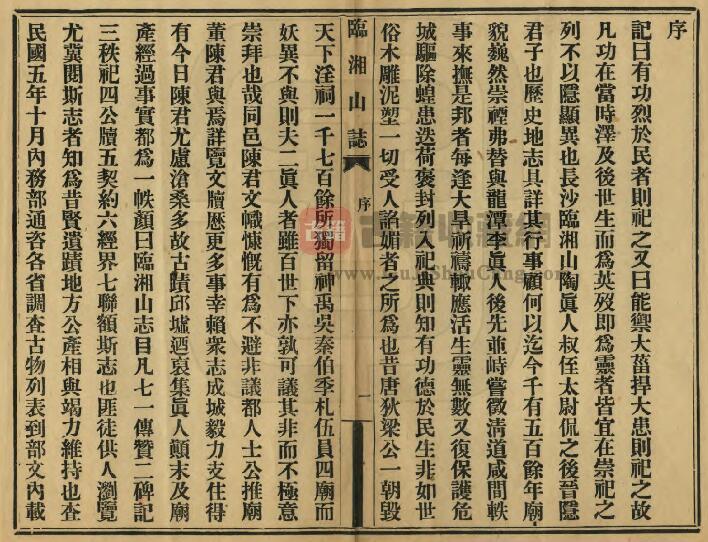 序
記曰有功烈於民者則祀之又曰能禦大菑捍大患則祀之故
凡功在當時澤及後世生而爲英歿即爲靈者皆宜在崇祀之
列不以隱顯異也長沙臨湘山陶眞人叔侄太尉侃之後晉隱
君子也歷史地志具詳其行事顧何以迄今千有五百餘年廟
貌巍然崇禋弗替與龍潭李眞人後先並峙嘗徵淸道咸間軼
事來撫是邦者每逢大旱祈禱輒應活生靈無數又復保護危
城驅除蝗患迭荷褒封列入祀典則知有功德於民生非如世
俗木雕泥塑一切受人諂媚者之所爲也昔唐狄梁公一朝毀
臨湘山誌 序 一
天下淫祠一千七百餘所獨留神禹吳秦伯季札伍員四廟而
妖異不與則夫二眞人者雖百世下亦孰可議其非而不極意
崇拜也哉同邑陳君文幟慷慨有爲不避非議都人士公推廟
董陳君與焉詳覽文牘歷更多事幸賴衆志成城毅力支住得
有今日陳君尤慮滄桑多故古蹟邱墟迺裒集眞人顚末及廟
產經過事實都爲一帙顏曰臨湘山志目凡七一傳贊二碑記
三秩祀四公牘五契約六經界七聯額斯志也匪徒供人瀏覽
尤冀閱斯志者知爲昔賢遺蹟地方公產相與竭力維持也查
民國五年十月內務部通咨各省調查古物列表到部文內載
古籍
古籍收藏網